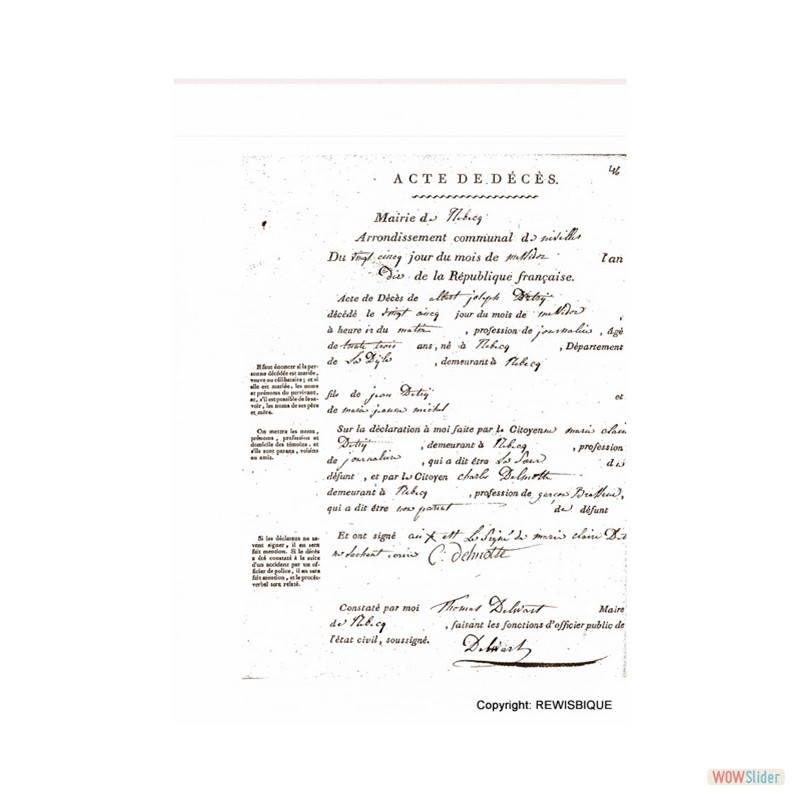 46
ACTE DE DÉCÈS.
Mairie de Rebecq
Arrondissement communal de nivelles
Du vingt cincq jour du mois de messidor l'an
dix de la République française.
Acte de Décès de albert joseph Detry
décédé le vingt cincq jour du mois de messidor ,
à heure du matin , profession de journalier , âgé
de trente trois ans, né à Rebecq , Département
de La Dÿle , demeurant à Rebecq
Il faut énoncer si la per-
sonne décédée est mariée,
veuve ou célibataire; et si
elle est mariée, les noms
et prénoms du survivant,
et, s'il est possible de le sa-
voir, les noms de ses père
et mère.
fils de jean Detrÿ et
de marie jeanne michel
On mettra les noms,
prénoms, profession et
domicile des témoins, et
s'ils sont parens, voisins
ou amis.
Sur la déclaration à moi faite par le Citoyenne marie clair
Detrÿ , demeurant à Rebecq , profession
de journaliere , qui a dit être La Sœur du
défunt , et par le Citoyen charles Delmotte
demeurant à Rebecq , profession de garçon Brasseur,
qui a dit être non parent de défunt
Si les déclarans ne sa-
vent signer, il en sera
fait mention. Si le décès
a été constaté à la suite
d'un accident par un of-
ficier de police, il en sera
fait mention, et le procès-
verbal sera relaté.
Et ont signé Le Signe de marie claire Det
ne sachant C: delmotte
Constaté par moi Thomas Delwart Maire
de Rebecq , faisant les fonctions d'officier public de
l'état civil, soussigné.
Delwart
Copyright: REWISBIQUE
WOWSlider